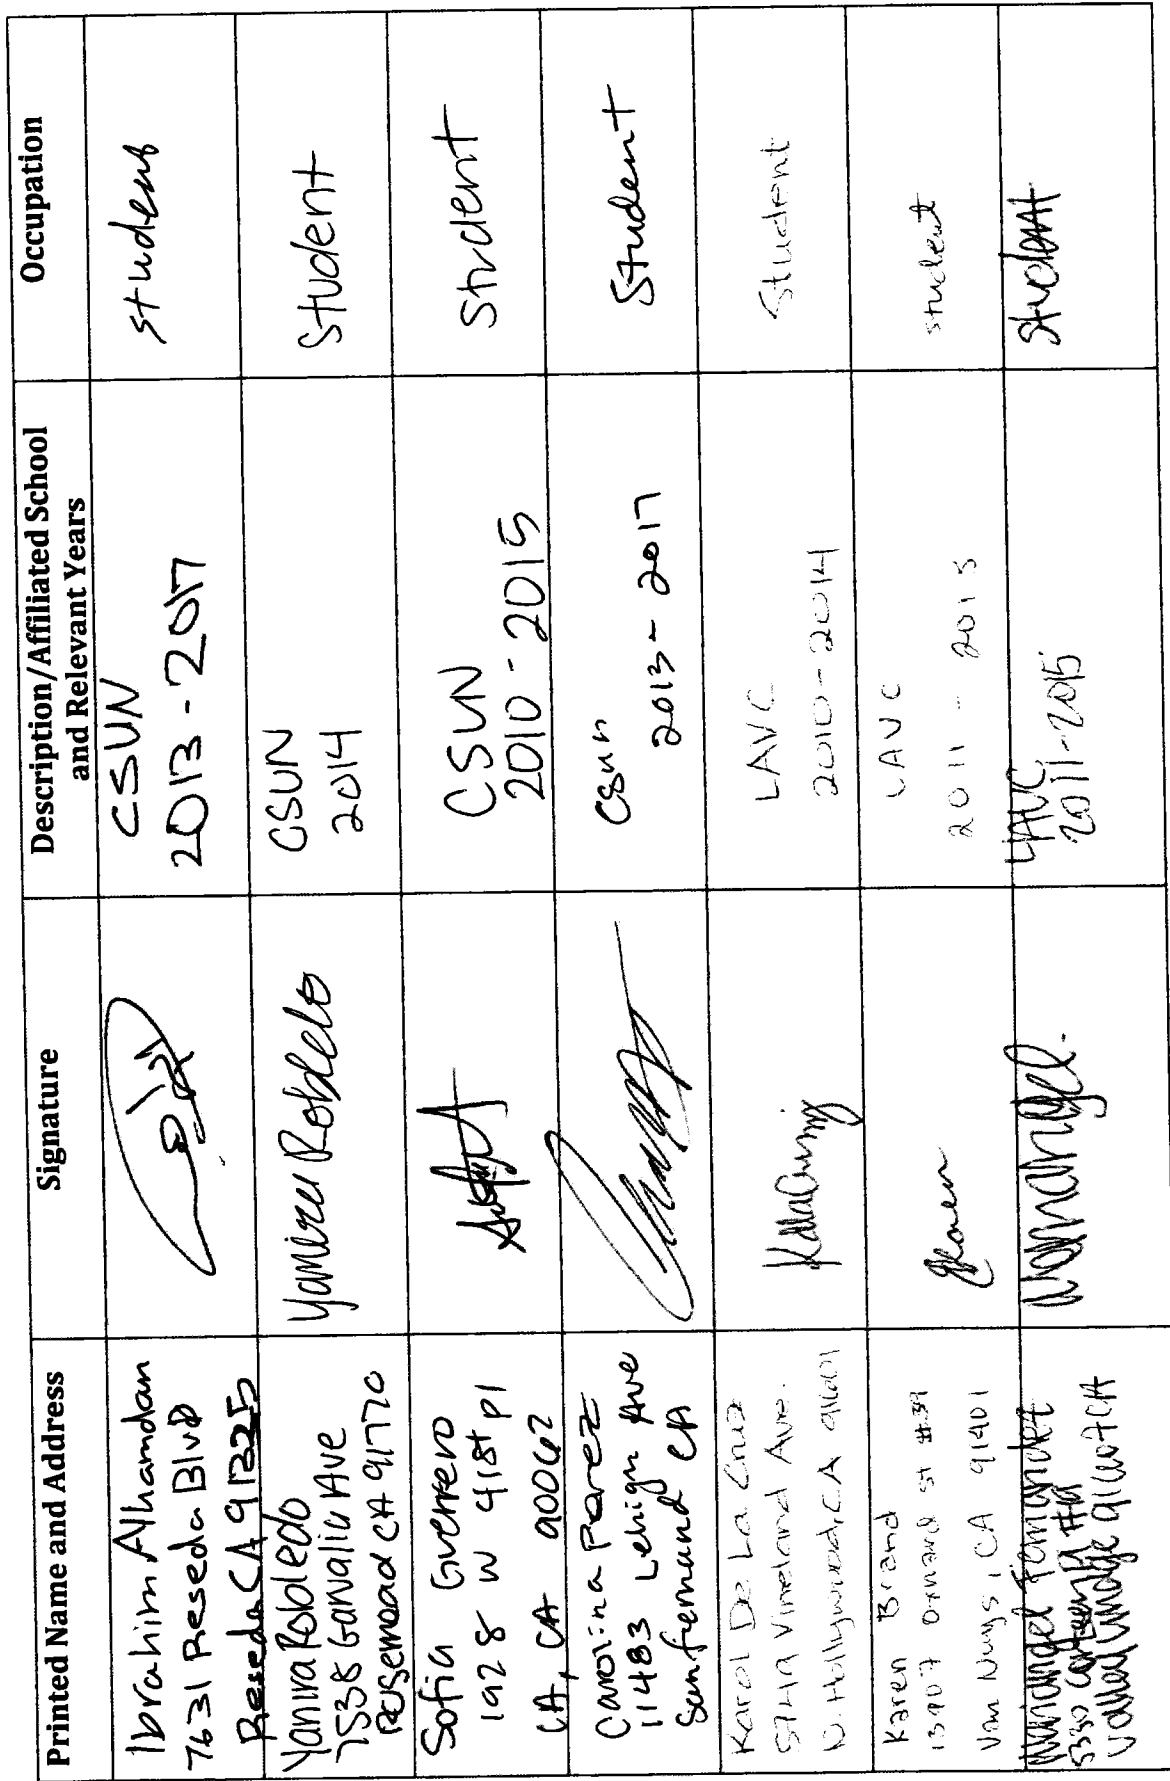 Printed Name and Address
Signature
Description/Affiliated School
and Relevant Years
Occupation
Ibrahim Alhamdan
7631 Reseda Blvd
Reseda CA 91325
CSUN
2013 - 2017
student
Yanira Robledo
7538 Garvalia Ave
Rosemead CA 91770
Yanira Robledo
CSUN
2014
Student
Sofia Guerrero
1928 W 41st pl
LA, CA 90062
CSUN
2010 - 2015
Student
Carolina Perez
11483 Lehigh Ave
San Fernand CA
CSun
2013 - 2017
Student
Karol De La Cruz
5749 Vineland Ave.
N. Hollywood, CA 91601
LAVC
2010 - 2014
Student
Karen Brand
13907 Oxnard st #39
Van Nuys, CA 91401
Karen
LAVC
2011 - 2013
student
5330
LAVC
2011-2015
student